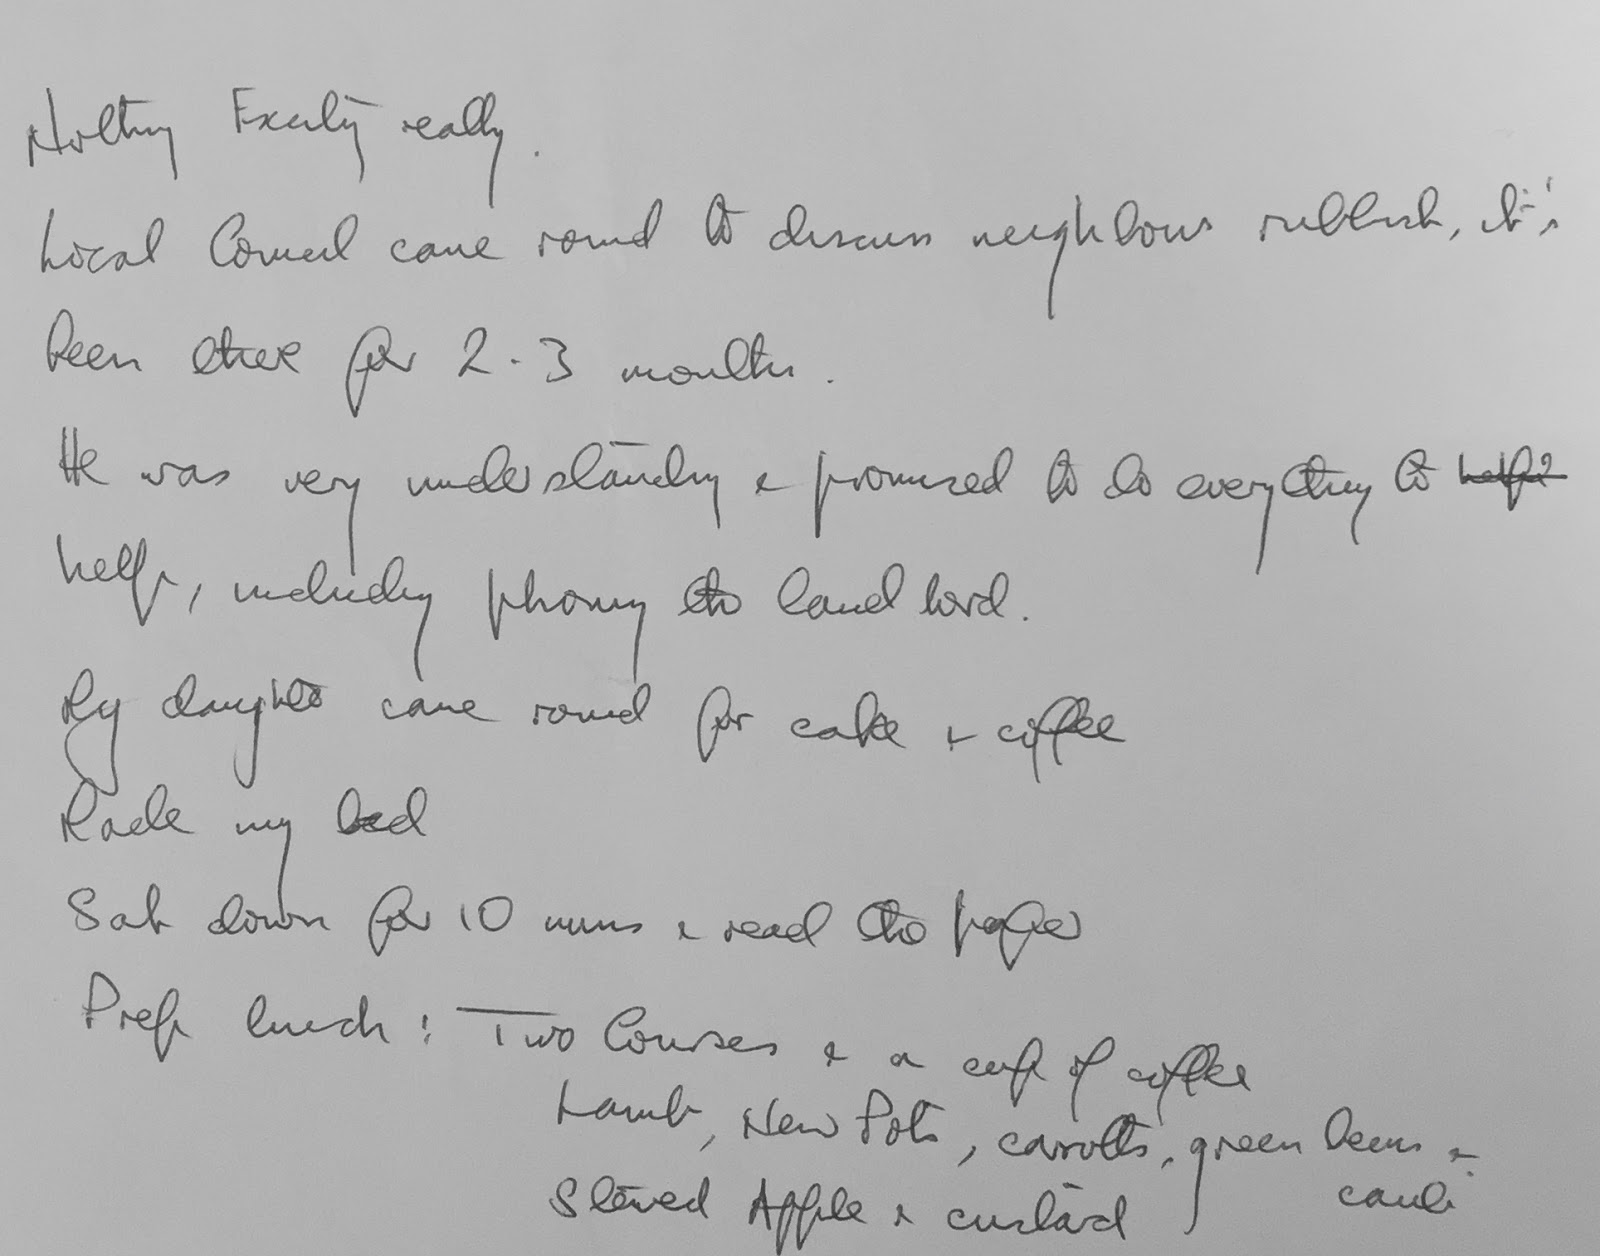 Nothing Exciting really.
Local Council came round to discuss neighbours rubbish, it's
been there for 2-3 months.
He was very understanding & promised to do everything to
help, including phoning the landlord.
My daughter came round for cake & coffee
Made my bed
Sat down for 10 mins & read the paper
Prep lunch: Two Courses & a cup of coffee
Lamb, New Pots, carrotts, green beans &
cauli
Stewed Apple & custard